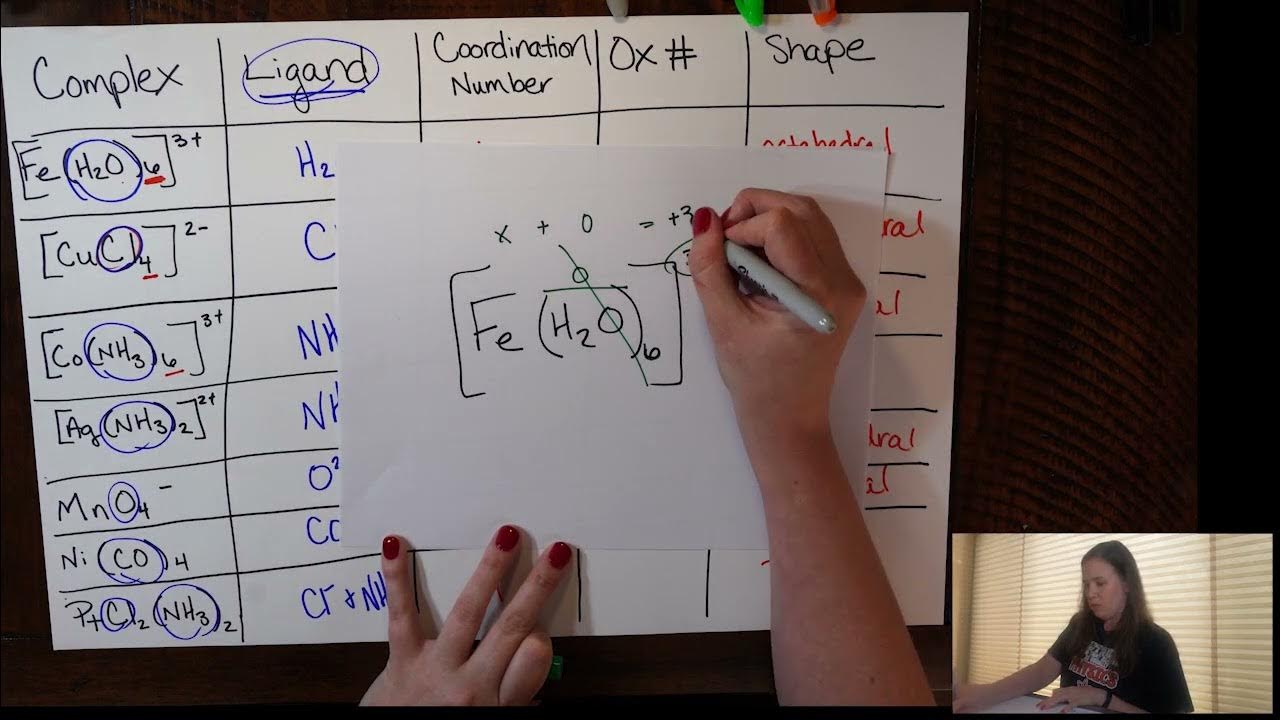 Complex Ligand Coordination Number Ox # Shape
[Fe(H₂O)₆]³⁺ H₂ octahedral
[CuCl₄]²⁻ C ral
[Co(NH₃)₆]³⁺ NH al
[Ag(NH₃)₂]²⁺ NH dral
MnO₄⁻ O² al
Ni(CO)₄ CO
PtCl₂(NH₃)₂ Cl⁻ + NH
x + 0 = +3
[Fe(H₂O)₆]